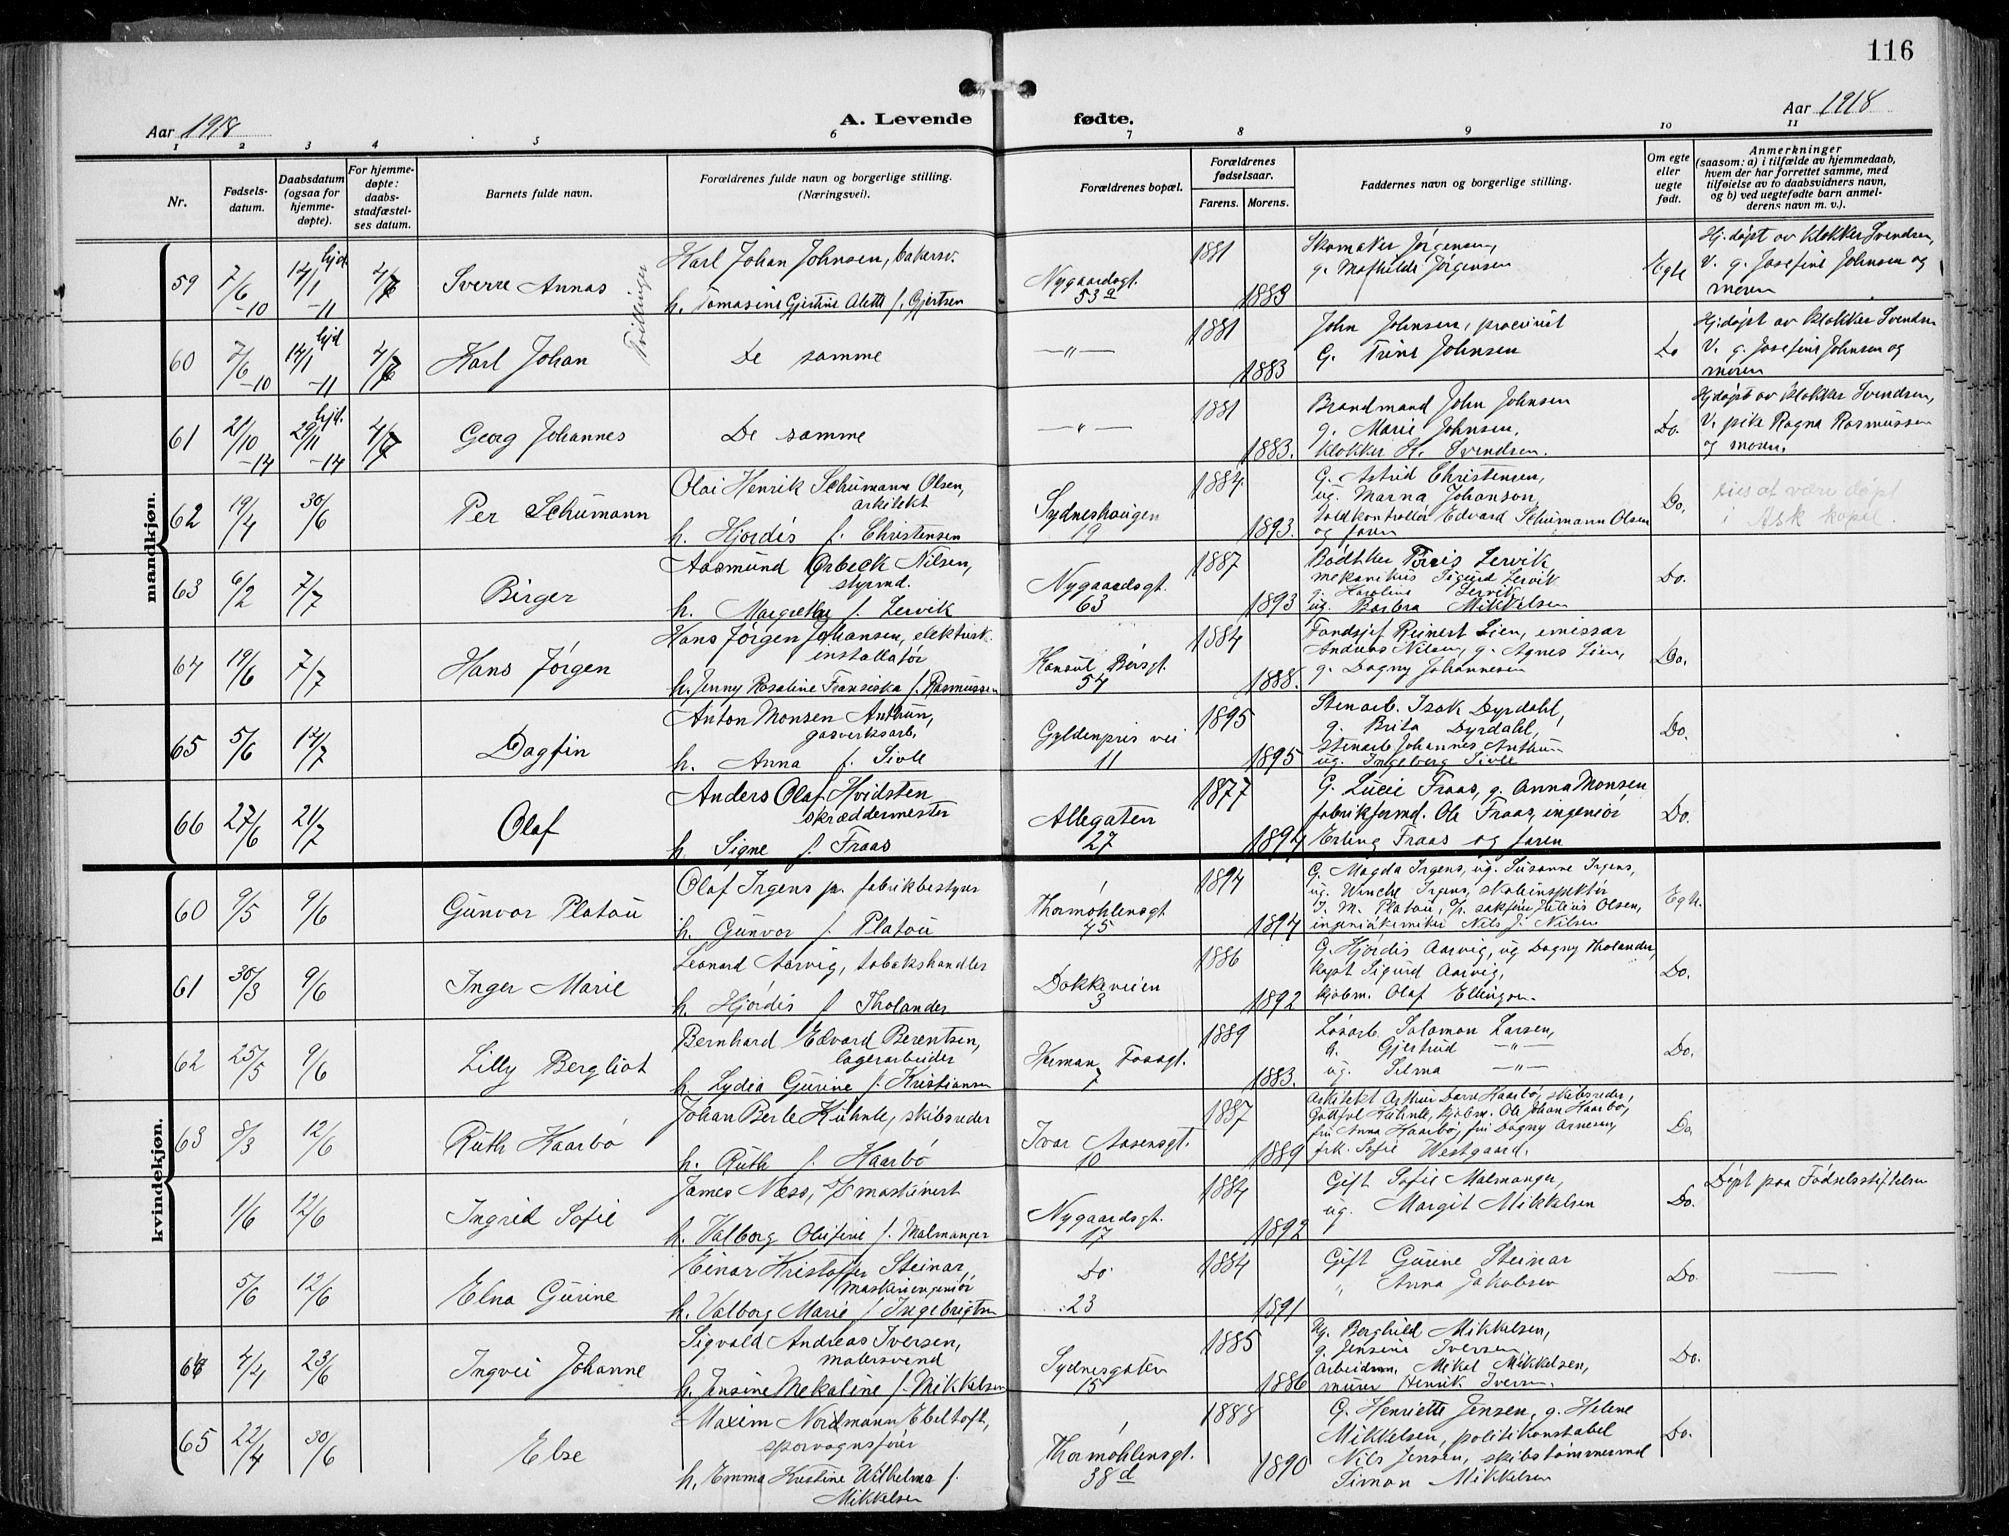 116
Aar 1918
A. Levende fødte.
Aar 1918
1 2 3 4 5 6 7 8 9 10 11
Nr.
Fødsels-
datum.
Daabsdatum
(ogsaa for
hjemme-
døpte).
For hjemme-
døpte:
daabs-
stadfæstel-
ses datum.
Barnets fulde navn.
Forældrenes fulde navn og borgerlige stilling.
(Næringsvei).
Forældrenes bopæl.
Forældrenes
fødselsaar.
Farens. Morens.
Faddernes navn og borgerlige stilling.
Om egte
eller
uegte
født.
Anmerkninger
(saasom: a) i tilfælde av hjemmedaab,
hvem der har forrettet samme, med
tilføielse av to daabsvidners navn,
og b) ved uegtefødte barn anmel-
derens navn m. v.).
mandkjøn.
59 7/6 -10 hjd. 14/1 -11 4/7 Sverre Annas
Tvillinger
Karl Johan Johnsen, bakersv.
h. Tomasine Gjertine Alette f. Gjertsen
Nygaardsgt.
53a
1881
1883
Skomaker Jørgensen,
g. Mathilde Jørgensen
Egte
Hj.døpt av klokker Svendsen,
V. g. Josefine Johnsen og
moren
60 7/6 -10 hjd 14/1 -11 4/7 Karl Johan
De samme
—"—
1881
1883
John Johnsen,
G. Trine Johnsen
Do
Hj.døpt av klokker Svendsen
V. g. Josefine Johnsen og
moren
61 21/10 -14 hjd. 29/11 -14 4/7 Georg Johannes
De samme
—"—
1881
1883.
Brandmand John Johnsen
g. Marie Johnsen,
Klokker H. Svendsen.
Do.
Hjdøpt av klokker Svendsen,
V. pike Ragna Rasmussen
og moren.
62 19/4 30/6 Per Schumann
Olai Henrik Schumann Olsen,
arkitekt
h. Hjørdis f. Christensen
Sydneshaugen
19
1884
1893.
G. Astrid Christensen,
ug. Marna Johanson,
Toldkontrollør Edvard Schumann Olsen
og faren
Do.
sies at være døpt
i Ask kapel.
63 6/2 7/7 Birger
Aasmund Ørbeck Nilsen,
styrmd.
h. Margrethe f. Lervik
Nygaardsgt.
63
1887
1893
Bødtker Lervik,
mekanikus Sigurd Lervik
g. Karoline Lervik
ug. Barbra Mikkelsen
Do.
64 19/6 7/7 Hans Jørgen
Hans Jørgen Johansen, elektrisk
installatør
h. Jenny Rosaline Fransiska f. Rasmussen
Konsul Børsgt.
54
1884
1888.
Fondsjef Reinert Lien, emissar
Andreas Nilsen, g. Agnes Lien,
g. Dagny Johannesen
Do.
65 5/6 14/7 Dagfin
Anton Monsen Anthun,
gasverksarb.
h. Anna f. Sivle
Gyldenpris vei
11
1895
1895
Stenarb. Isak Dyrdahl,
g. Brita Dyrdahl,
Stenarb Johannes Anthun
ug. Ingeborg Sivle
Do.
66 27/6 21/7 Olaf
Anders Olaf Hvidsten
skræddermester
h Signe f. Fraas
Allegaten
27
1877
1894
G. Lucie Fraas, g. Anna Monsen,
fabrikformd. Ole Fraas, ingeniør
Erling Fraas og faren
Do.
kvindekjøn.
60 9/5 9/6 Gunvor Platou
Olaf Irgens jr. fabrikbestyrer
h. Gunvor f. Platou
Thormøhlensgt
45
1894
1894
G. Magda Irgens, ug. Susanne Irgens,
ug. Wenche Irgens, skoleinspektør
I. M. Platou, o.r. sakfører Julius Olsen,
ingeniørkemiker Nils J. Nilsen
Egte.
61 30/3 9/6 Inger Marie
Leonard Aarvig, tobakshandler
h. Hjørdis f. Tholander
Dokkeveien
3
1886
1892
G. Hjørdis Aarvig, ug Dagny Tholander,
kapt Sigurd Aarvig,
kjøbm. Olaf Ellingsen.
Do.
62 25/5 9/6 Lilly Bergliot
Bernhard Edvard Berentsen,
lagerarbeider
h. Lydia Gurine f. Kristiansen
Herman Fossgt.
7
1889
1883.
Løsarb Salomon Larsen,
g. Gjertrud —"—
ug. Selma —"—
Do.
63 8/3 12/6 Ruth Haarbø
Johan Berle Kuhnle, skibsreder
h. Ruth f. Haarbø
Ivar Aasensgt.
10
1887
1889
Arkitekt Arthur Haarbø, skibsreder,
Kuhnle, kjøbm. Ole Johan Haarbø,
fru Anna Haarbø, fru Dagny Arnesen,
frk. Sofie Westgaard.
Do.
1/6 12/6 Ingrid Sofie
James Næss, maskinert
h. Valborg Olufine f. Malmanger
Nygaardsgt.
17
1884
1892
Gift Sofie Malmanger,
ug. Margit Mikkelsen
Do.
Døpt paa Fødselsstiftelsen
5/6 12/6 Elna Gurine
Einar Kristoffer Steinar,
maskiningeniør
h. Valborg Marie f. Ingebrigtsen
Do
23
1884
1891
Gift Gurine Steinar
" Anna Jakobsen
Do.
—
64 4/4 23/6 Ingvei Johanne
Sigvald Andreas Iversen,
malersvend
h. Jensine Mekaline f. Mikkelsen
Sydnesgaten
15
1885
1886
Ug. Berghild Mikkelsen,
g. Jensine Iversen
Arbeidsm. Mikal Mikkelsen,
murer Henrik Iversen.
Do.
65 22/4 30/6 Else
Maxim Nordmann Ebeltoft,
sporvognsfører
h. Emma Kristine Wilhelma f.
Mikkelsen
Thormøhlensgt.
38d
1888
1890
G. Henriette Jensen, g. Helene
Mikkelsen, politikonstabel
Nils Jensen, skibstømmermd
Simon Mikkelsen
Do.